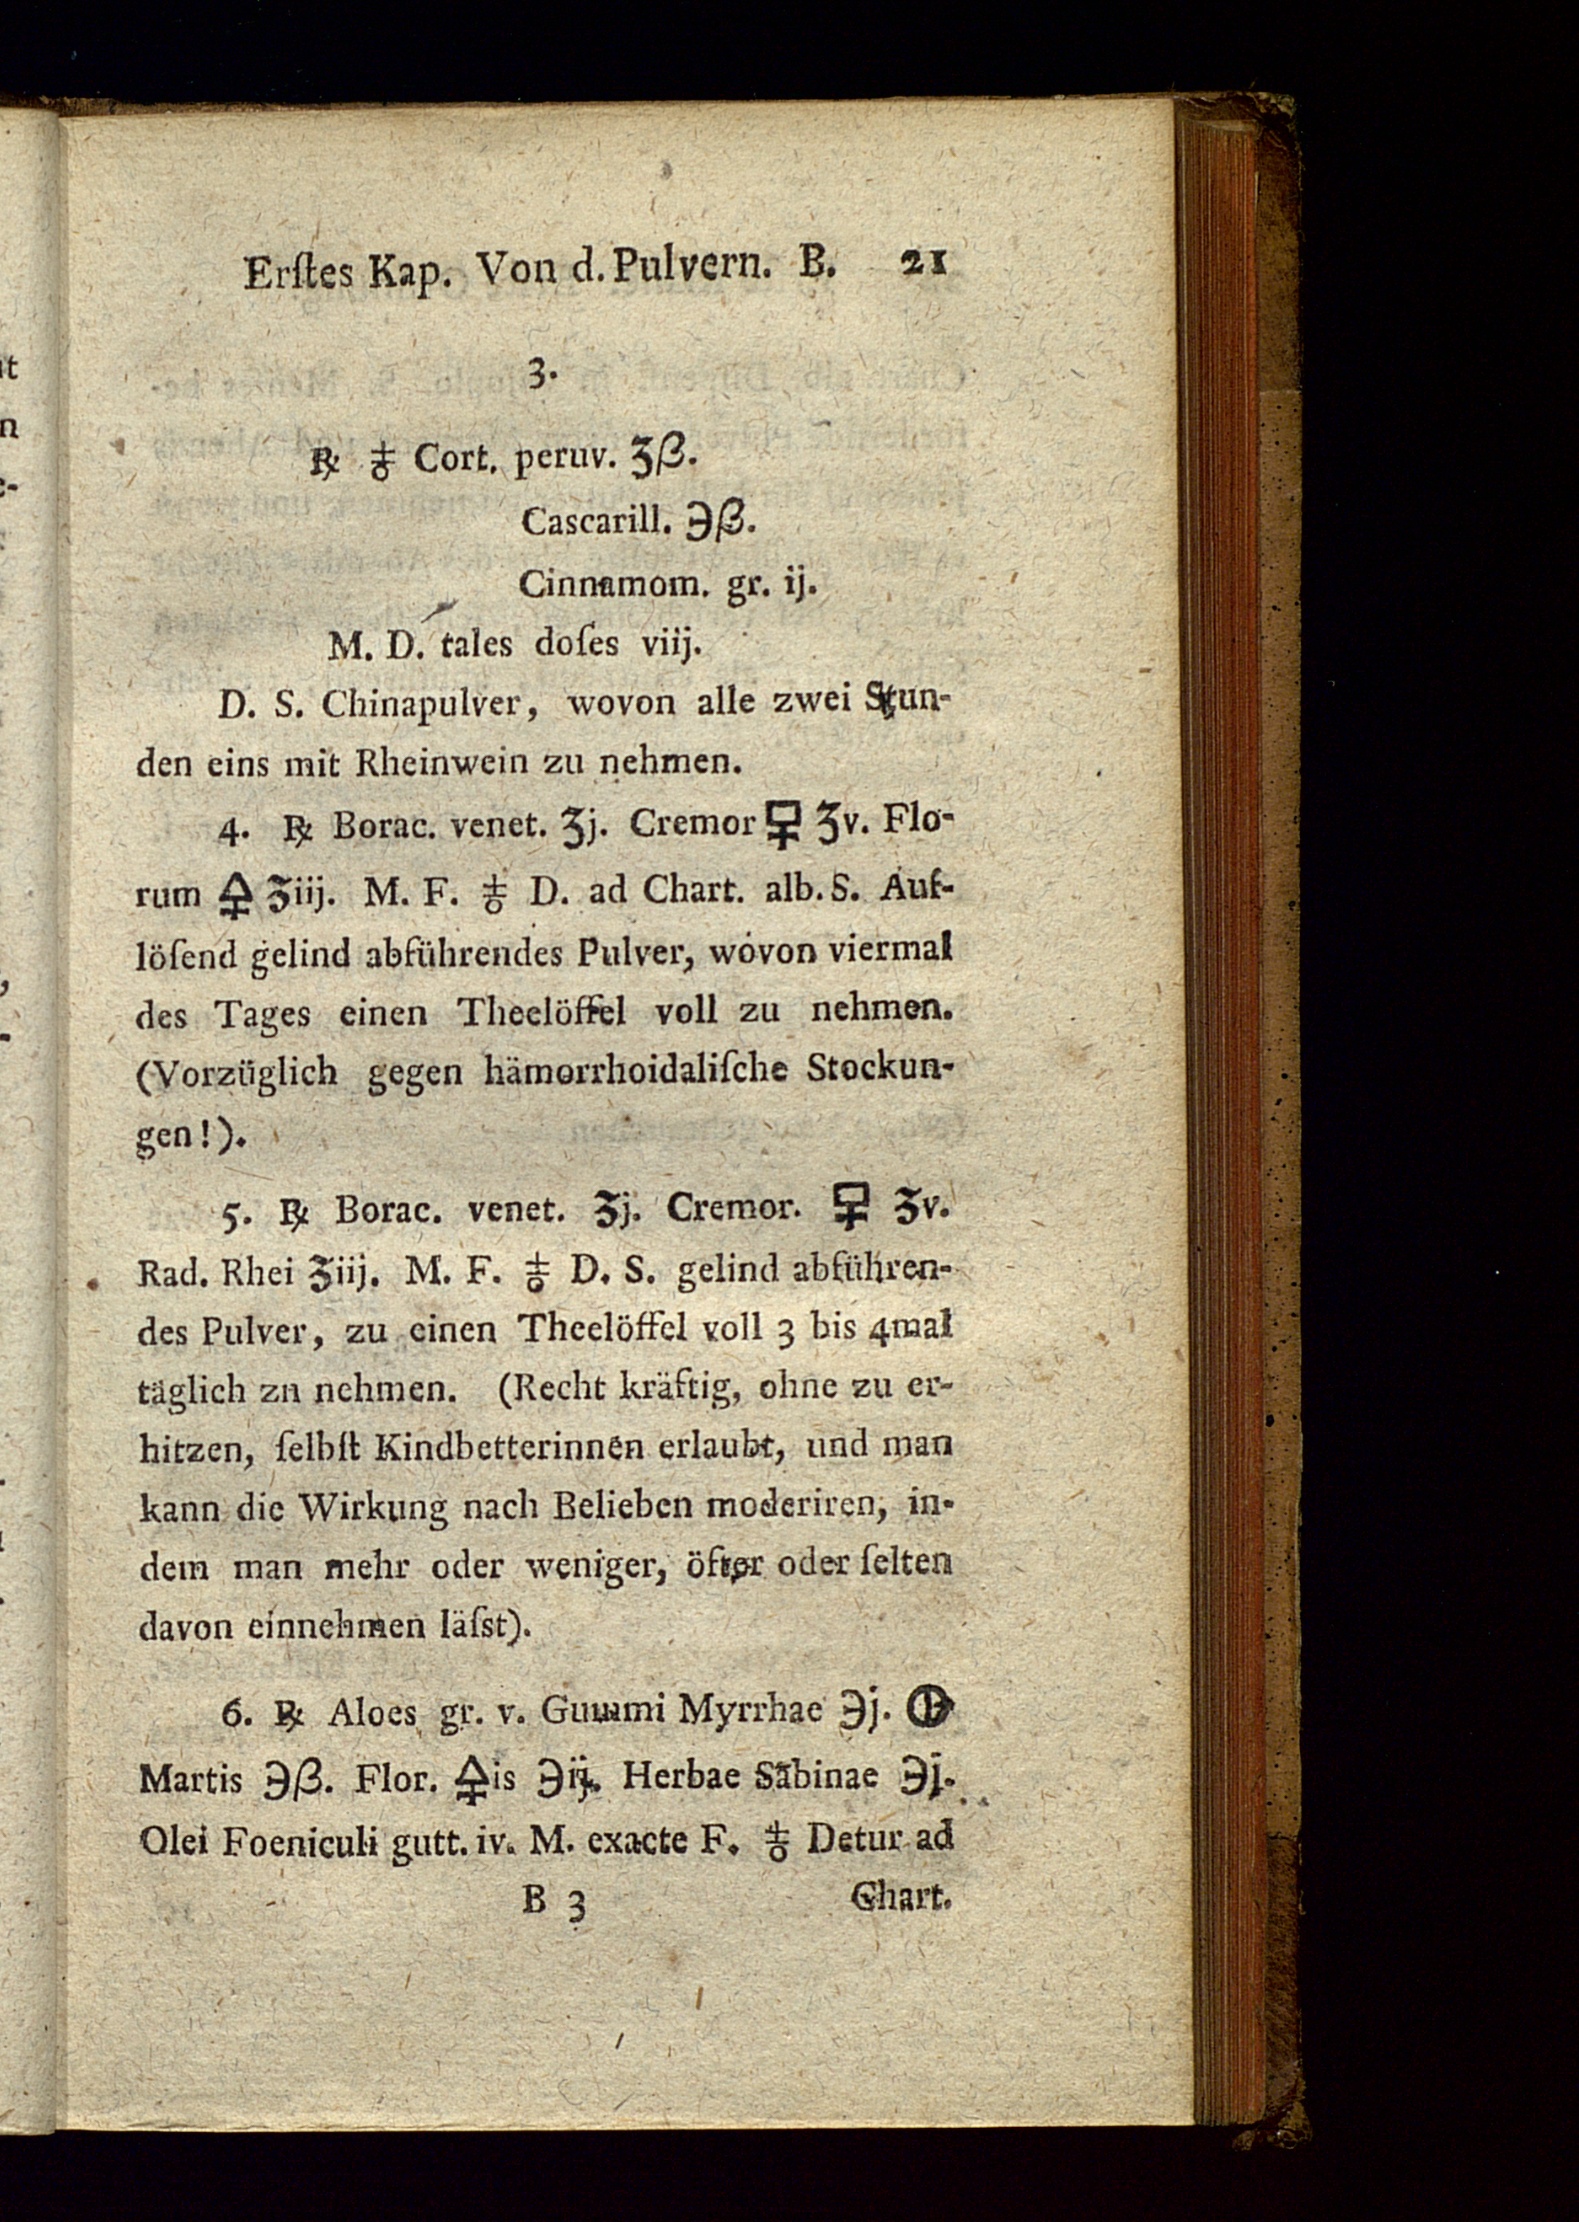 Erſtes Kap. Von d. Pulvern. B. 21
3.
℞ ♁ Cort. peruv. ʒß.
Cascarill. ℈ß.
Cinnamom. gr. ij.
M. D. tales doſes viij.
D. S. Chinapulver, wovon alle zwei Stun-
den eins mit Rheinwein zu nehmen.
4. ℞ Borac. venet. ʒj. Cremor 🜿 ʒv. Flo-
rum 🜍 ʒiij. M. F. ♁ D. ad Chart. alb. S. Auf-
löſend gelind abführendes Pulver, wovon viermal
des Tages einen Theelöffel voll zu nehmen.
(Vorzüglich gegen hämorrhoidaliſche Stockun-
gen!).
5. ℞ Borac. venet. ʒj. Cremor. 🜿 ʒv.
Rad. Rhei ʒiij. M. F. ♁ D. S. gelind abführen-
des Pulver, zu einen Theelöffel voll 3 bis 4mal
täglich zu nehmen. (Recht kräftig, ohne zu er-
hitzen, ſelbſt Kindbetterinnen erlaubt, und man
kann die Wirkung nach Belieben moderiren, in-
dem man mehr oder weniger, öfter oder ſelten
davon einnehmen läſst).
6. ℞ Aloes gr. v. Gummi Myrrhae ℈j. 🜖
Martis ℈ß. Flor. 🜍is ℈ij. Herbae Sabinae ℈j.
Olei Foeniculi gutt. iv. M. exacte F. ♁ Detur ad
B 3 Chart.